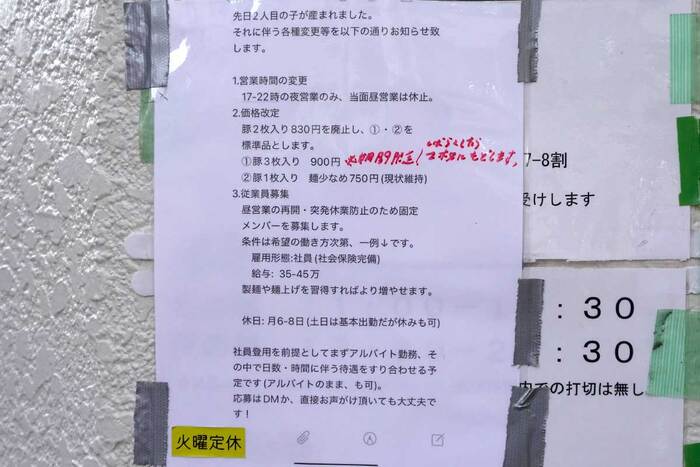 先日2人目の子が産まれました。
それに伴う各種変更等を以下の通りお知らせ致
します。
1.営業時間の変更
17-22時の夜営業のみ、当面昼営業は休止。
2.価格改定
豚2枚入り830円を廃止し、①・②を
標準品とします。
①豚3枚入り 900円
しばらくしたら
もどします。
②豚1枚入り 麺少なめ750円(現状維持)
3.従業員募集
昼営業の再開・突発休業防止のため固定
メンバーを募集します。
条件は希望の働き方次第、一例↓です。
雇用形態:社員(社会保険完備)
給与: 35-45万
製麺や麺上げを習得すればより増やせます。
休日: 月6-8日(土日は基本出勤だが休みも可)
社員登用を前提としてまずアルバイト勤務、そ
の中で日数・時間に伴う待遇をすり合わせる予
定です(アルバイトのまま、も可)。
応募はDMか、直接お声がけ頂いても大丈夫で
す!
火曜定休
7-8割
受けします
:30
:30
内での打切は無し